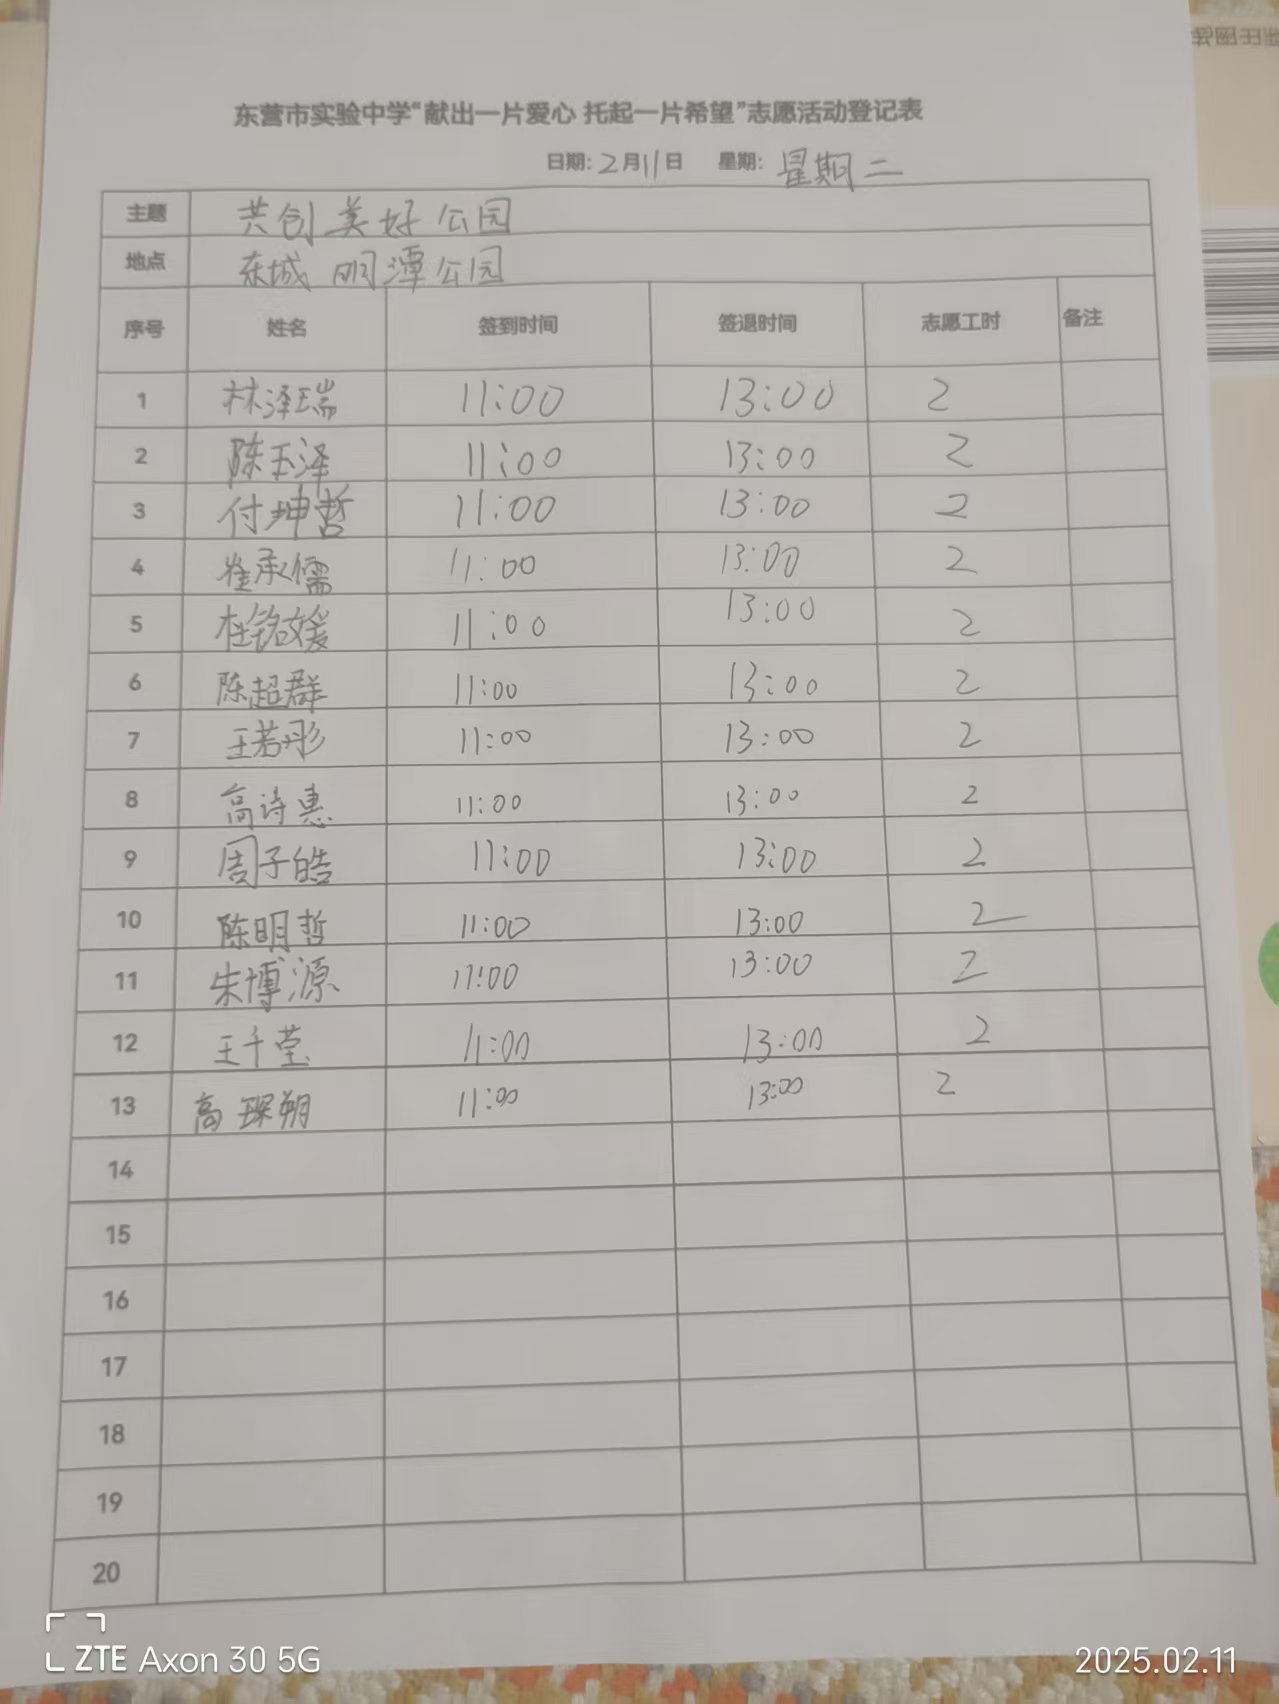 东营市实验中学“献出一片爱心 托起一片希望”志愿活动登记表
日期: 2月11日 星期: 星期二
主题 共创美好公园
地点 东城 明潭公园
序号 姓名 签到时间 签退时间 志愿工时 备注
1 林泽瑞 11:00 13:00 2
2 陈玉泽 11:00 13:00 2
3 付坤哲 11:00 13:00 2
4 崔承儒 11:00 13:00 2
5 杜铭媛 11:00 13:00 2
6 陈超群 11:00 13:00 2
7 王若彤 11:00 13:00 2
8 高诗惠 11:00 13:00 2
9 周子皓 11:00 13:00 2
10 陈明哲 11:00 13:00 2
11 朱博源 11:00 13:00 2
12 王千莹 11:00 13:00 2
13 高琛朔 11:00 13:00 2
14
15
16
17
18
19
20
ZTE Axon 30 5G
2025.02.11